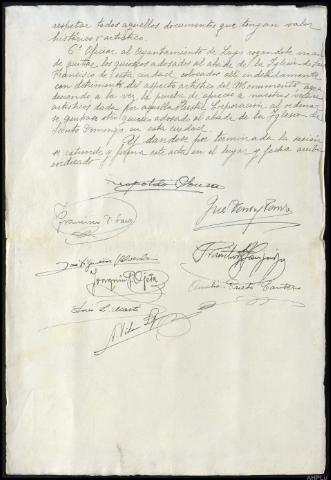 respetar todos aquellos documentos que tengan valor
histórico y artístico.
6º Oficiar al Ayuntamiento de Lugo rogándole mande
quitar los quioscos adosados al abside de la Iglesia de San
Francisco de esta ciudad, colocados allí indebidamente
con detrimento del aspecto artístico del Monumento, agra
deciendo a la vez, la prueba de aprecio a nuestras
artísticos dada por aquella Corporación al ordenar
se quitase otro quiosco adosado al abside de la Iglesia de
Santo Domingo, en esta ciudad.
Y dándose por terminada la sesión
se extiende y firma este acta en el lugar y fecha arriba
indicado
Francisco
José
Joaquín
Luis
Amalio Prieto Cantero
A. Vila
AHPLU